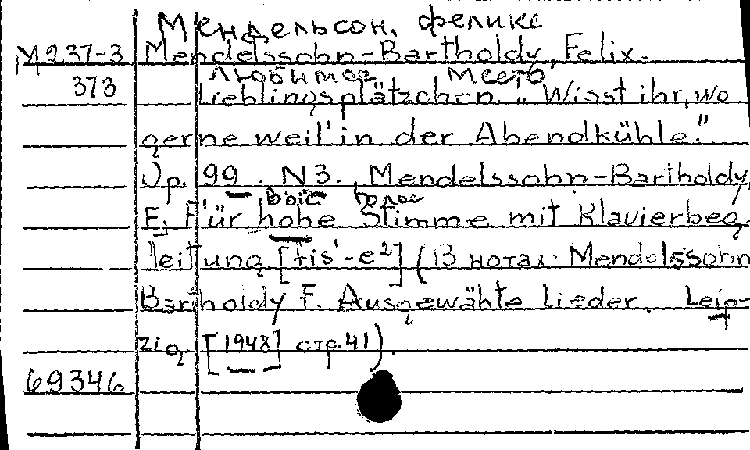 Мендельсон, феликс
М237-3 Mendelssohn-Bartholdy, Felix.
Любимое место
373 Lieblingsplätzchen „Wisst ihr, wo
gerne weil' in der Abendkühle."
Op. 99. N3. Mendelssohn-Bartholdy,
F. Für hohe Stimme mit Klavierbeg-
leitung [fis'-e²] (В нотах: Mendelssohn
Bartholdy F. Ausgewählte Lieder. Leip-
zig [1948] стр.41).
69346